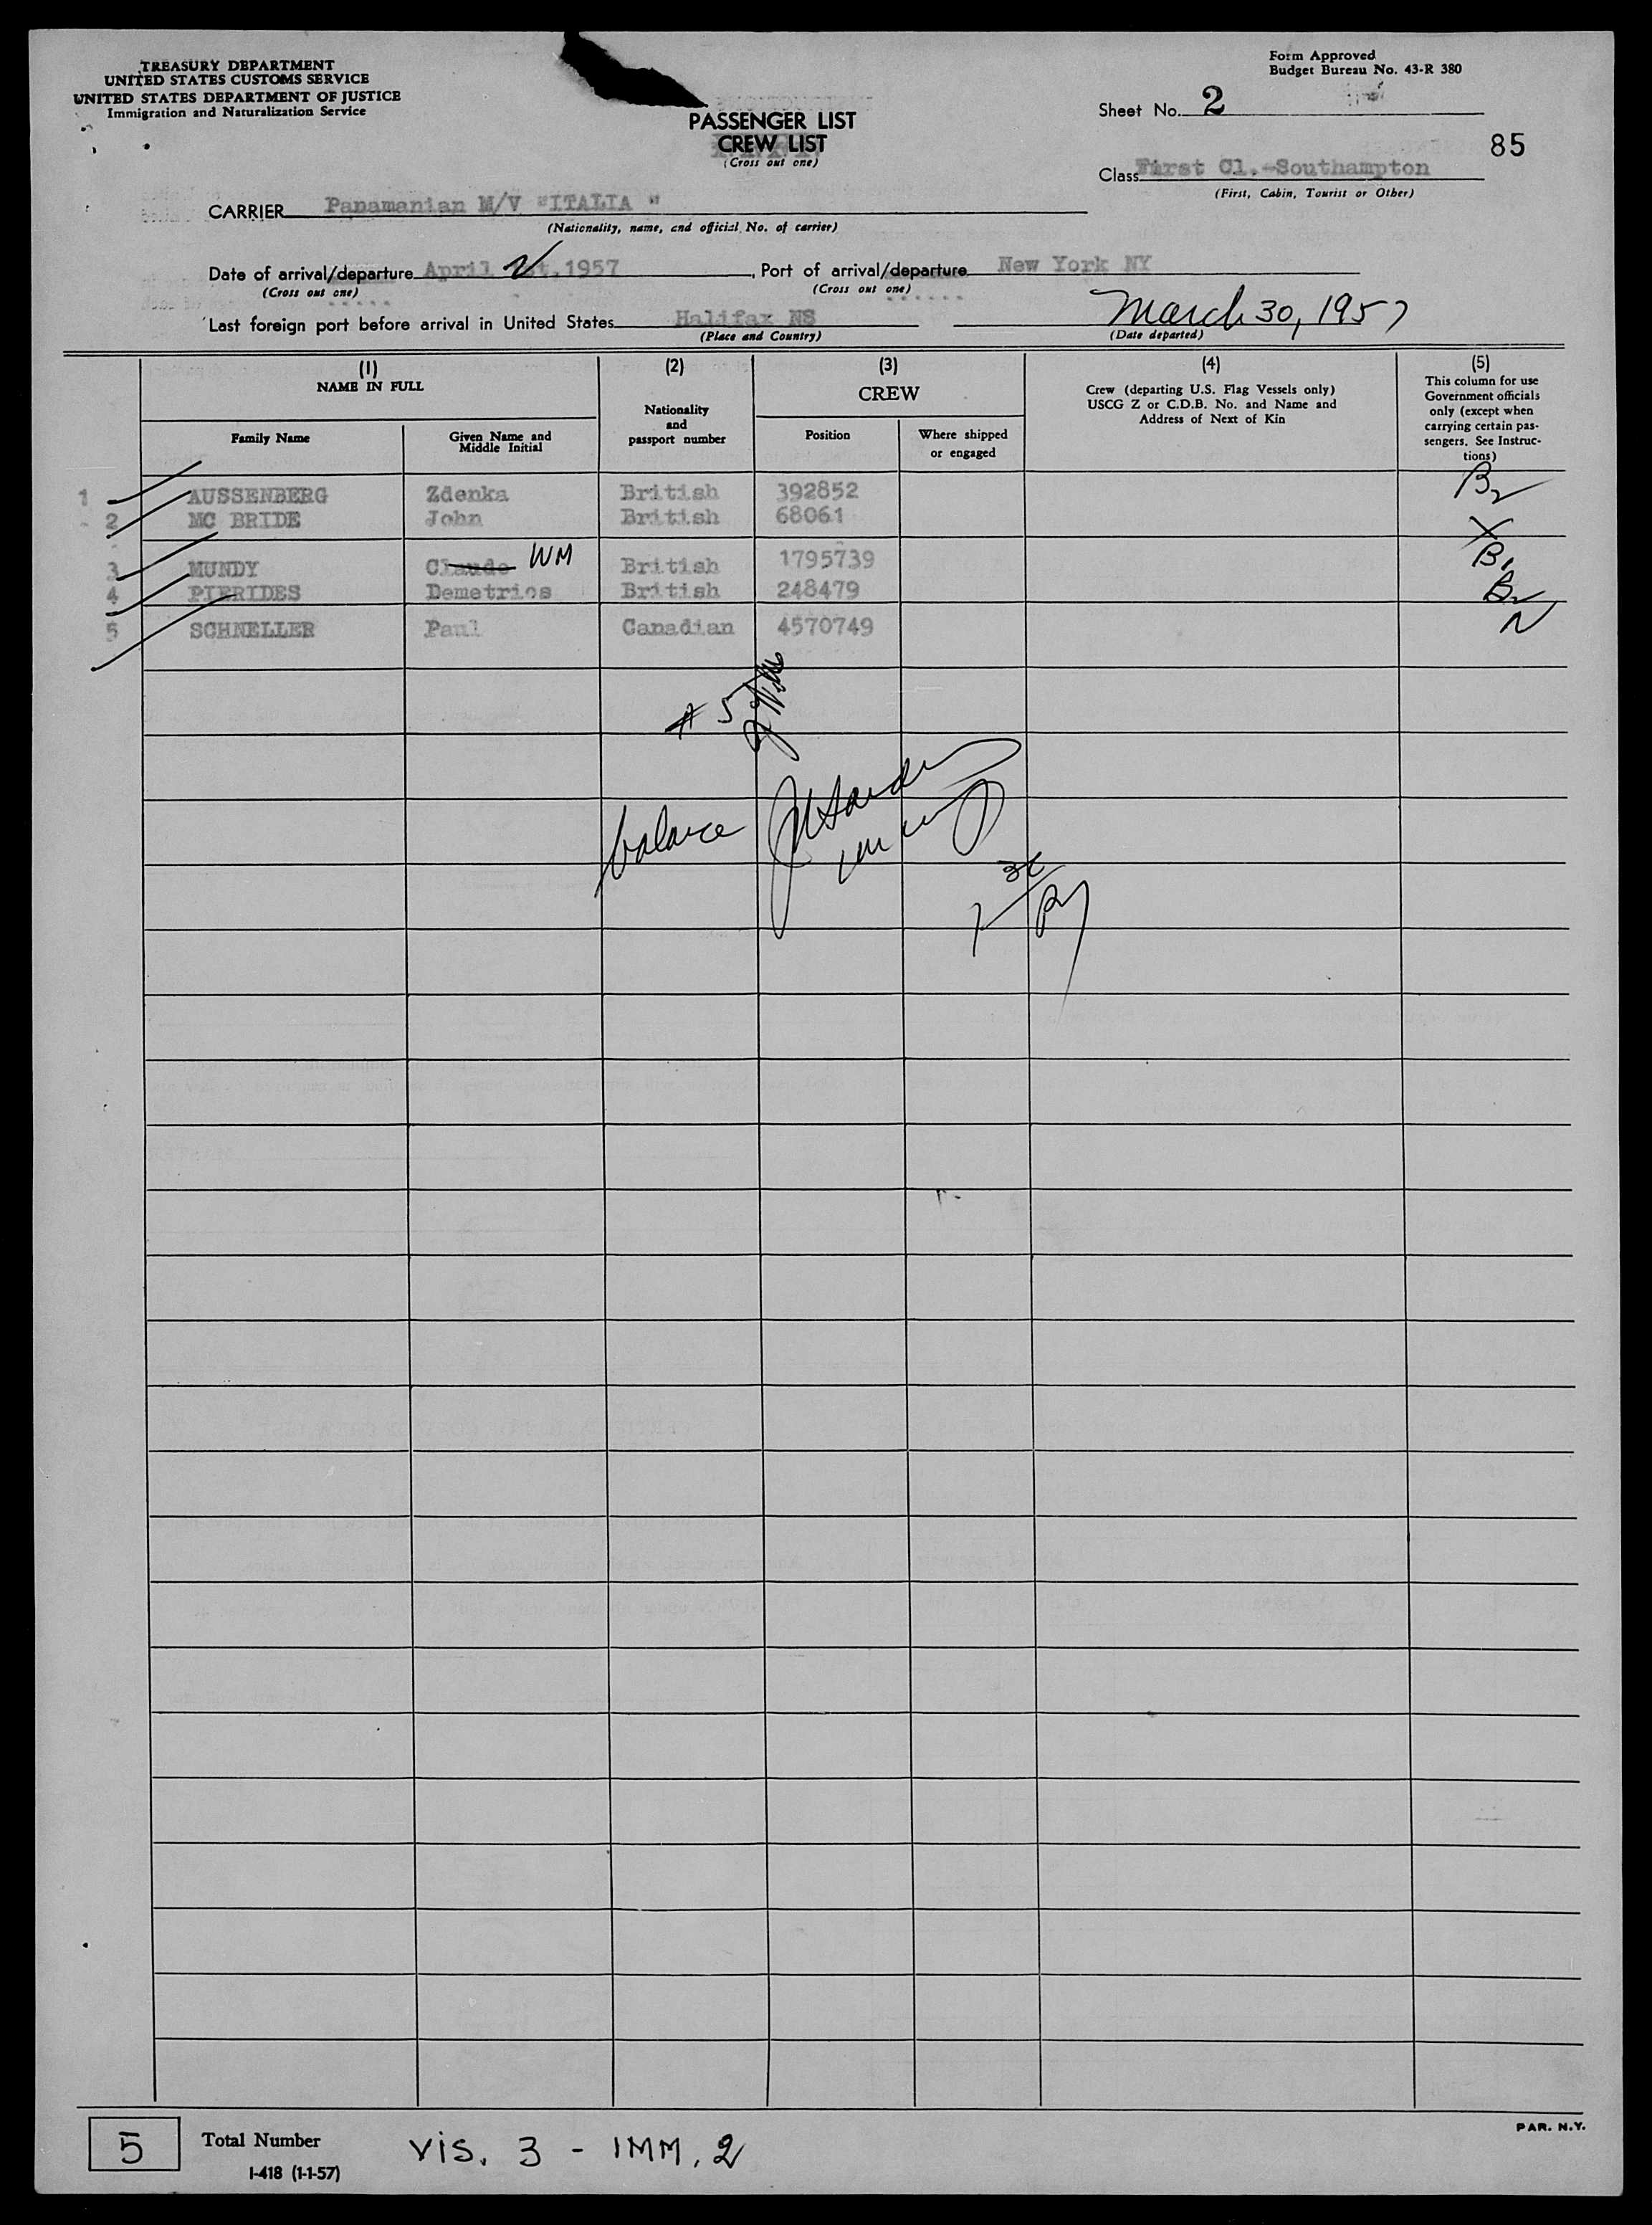 TREASURY DEPARTMENT
UNITED STATES CUSTOMS SERVICE
UNITED STATES DEPARTMENT OF JUSTICE
Immigration and Naturalization Service
Form Approved
Budget Bureau No. 43-R 380
PASSENGER LIST
CREW LIST
(Cross out one)
Sheet No. 2
85
Class First Cl.-Southampton
(First, Cabin, Tourist or Other)
CARRIER Panamanian M/V "ITALIA "
(Nationality, name, and official No. of carrier)
Date of arrival/departure April 2 st,1957, Port of arrival/departure New York NY
(Cross out one) (Cross out one)
Last foreign port before arrival in United States Halifax NS March 30, 1957
(Place and Country) (Date departed)
(1) (2) (3) (4) (5)
NAME IN FULL
Nationality and passport number
CREW
Crew (departing U.S. Flag Vessels only) USCG Z or C.D.B. No. and Name and Address of Next of Kin
This column for use Government officials only (except when carrying certain passengers. See Instructions)
Family Name Given Name and Middle Initial Position Where shipped or engaged
1 AUSSENBERG Zdenka British 392852 B2
2 MC BRIDE John British 68061 X
3 MUNDY Claude WM British 1795739 B1
4 PIERIDES Demetrios British 248479 B2
5 SCHNELLER Paul Canadian 4570749 N
# 5
balance
5 Total Number VIS. 3 - IMM. 2
I-418 (1-1-57)
PAR. N.Y.